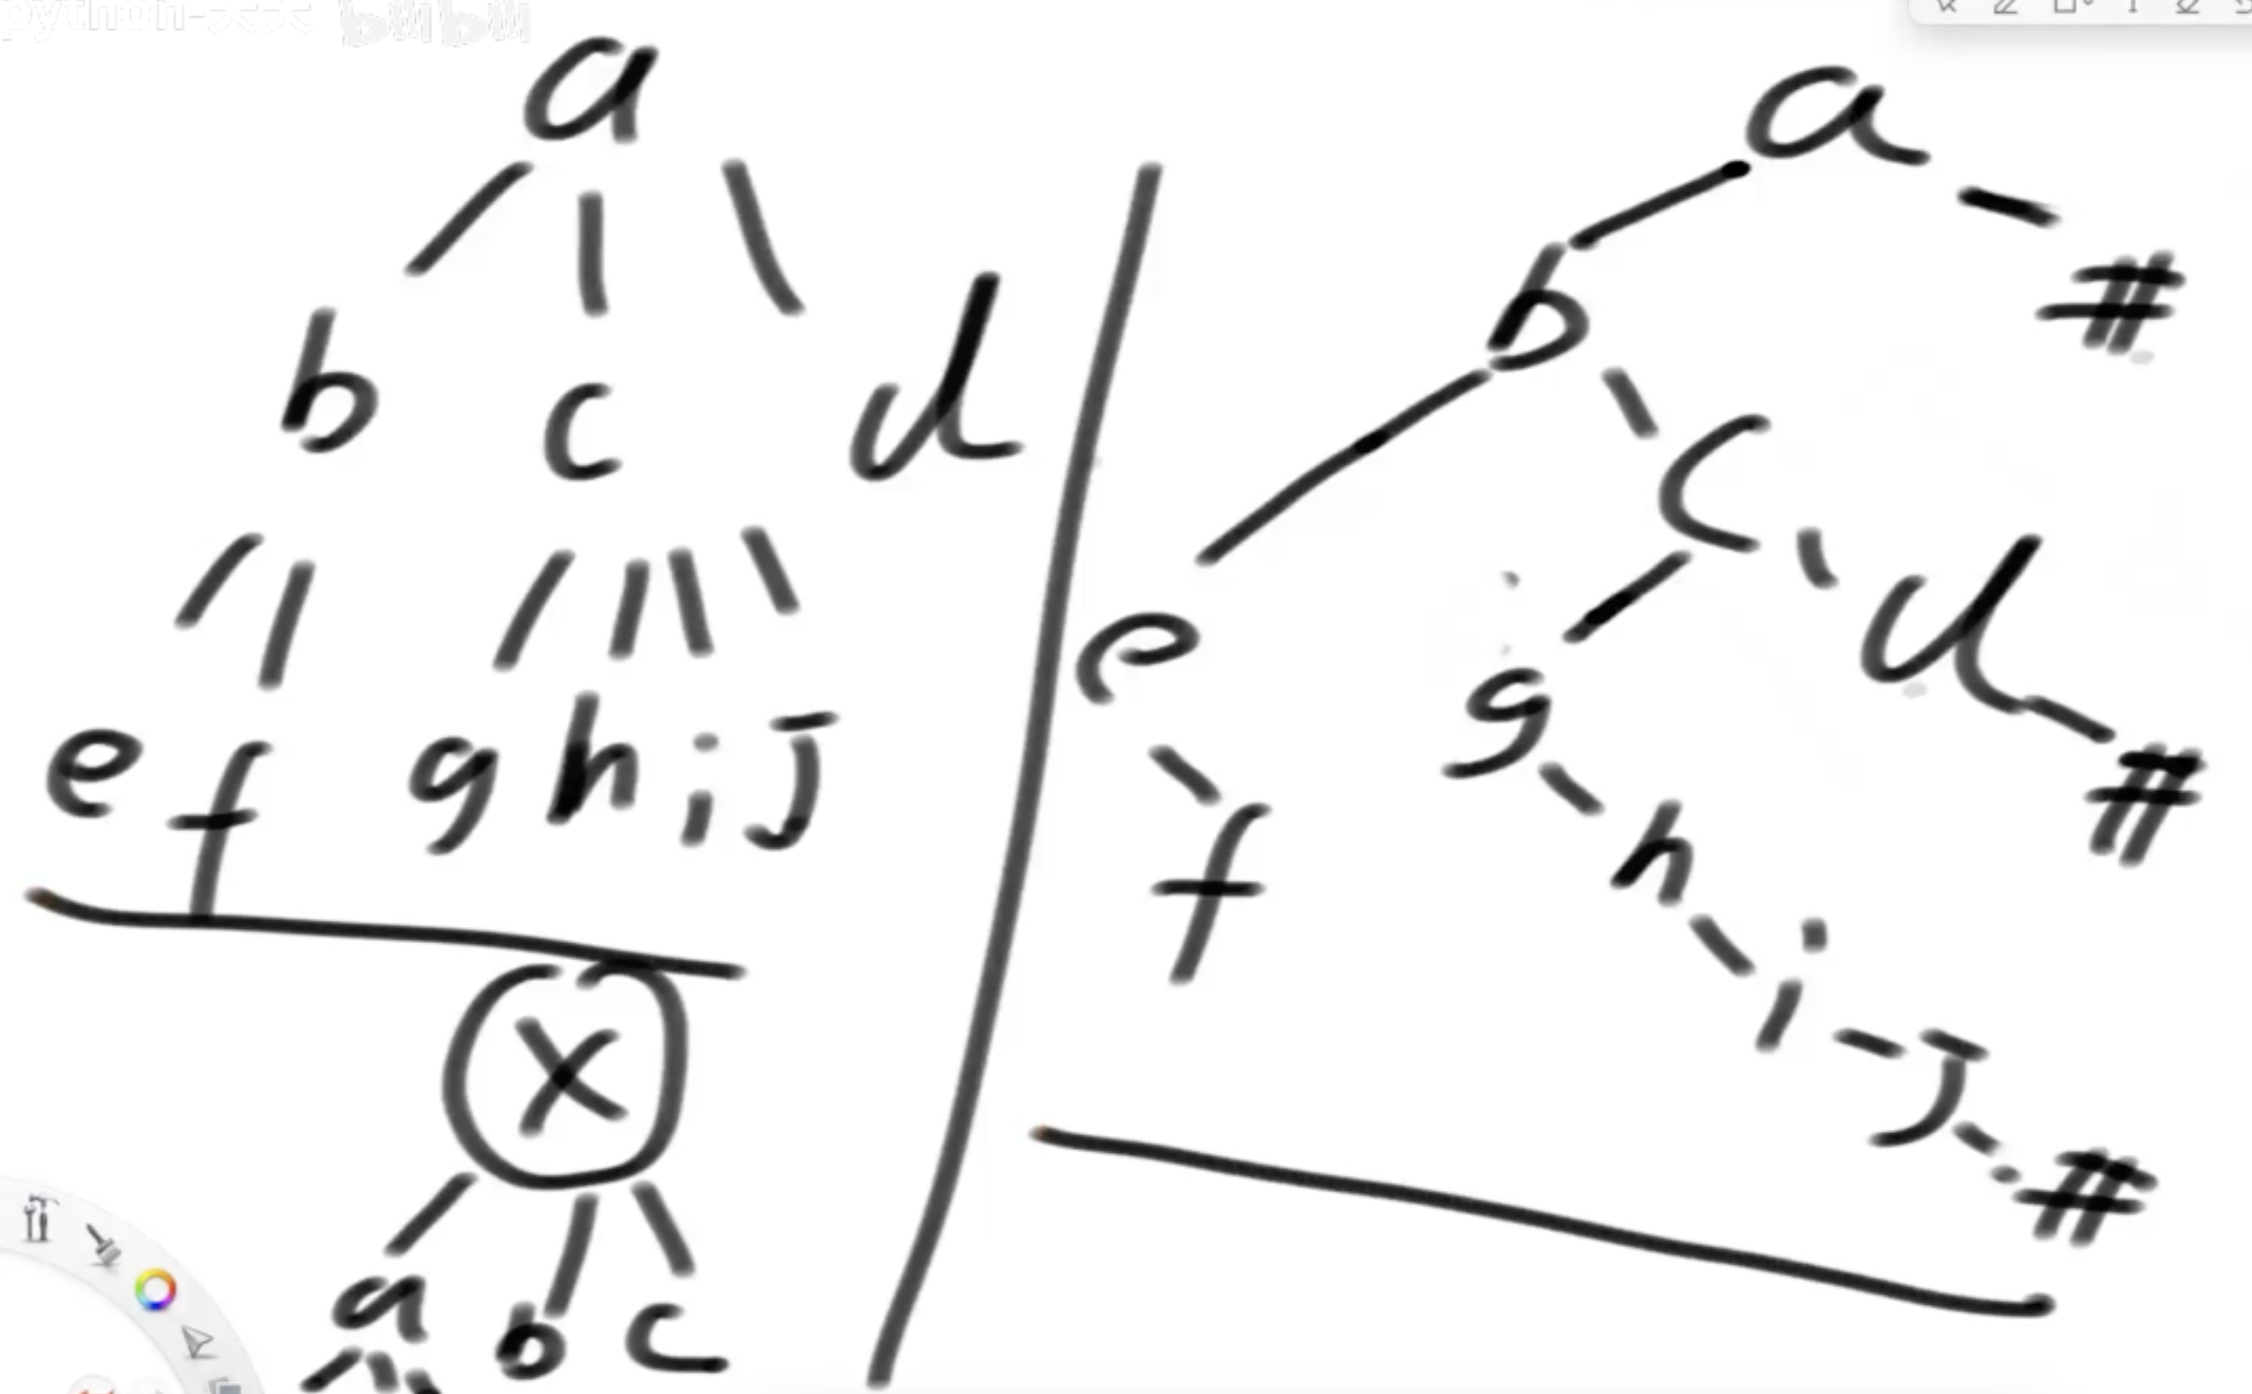 python-天天 bmbm
a
b c d
e f g h i j
x
a b c
a #
b
c
e g d
#
f h
i j
#